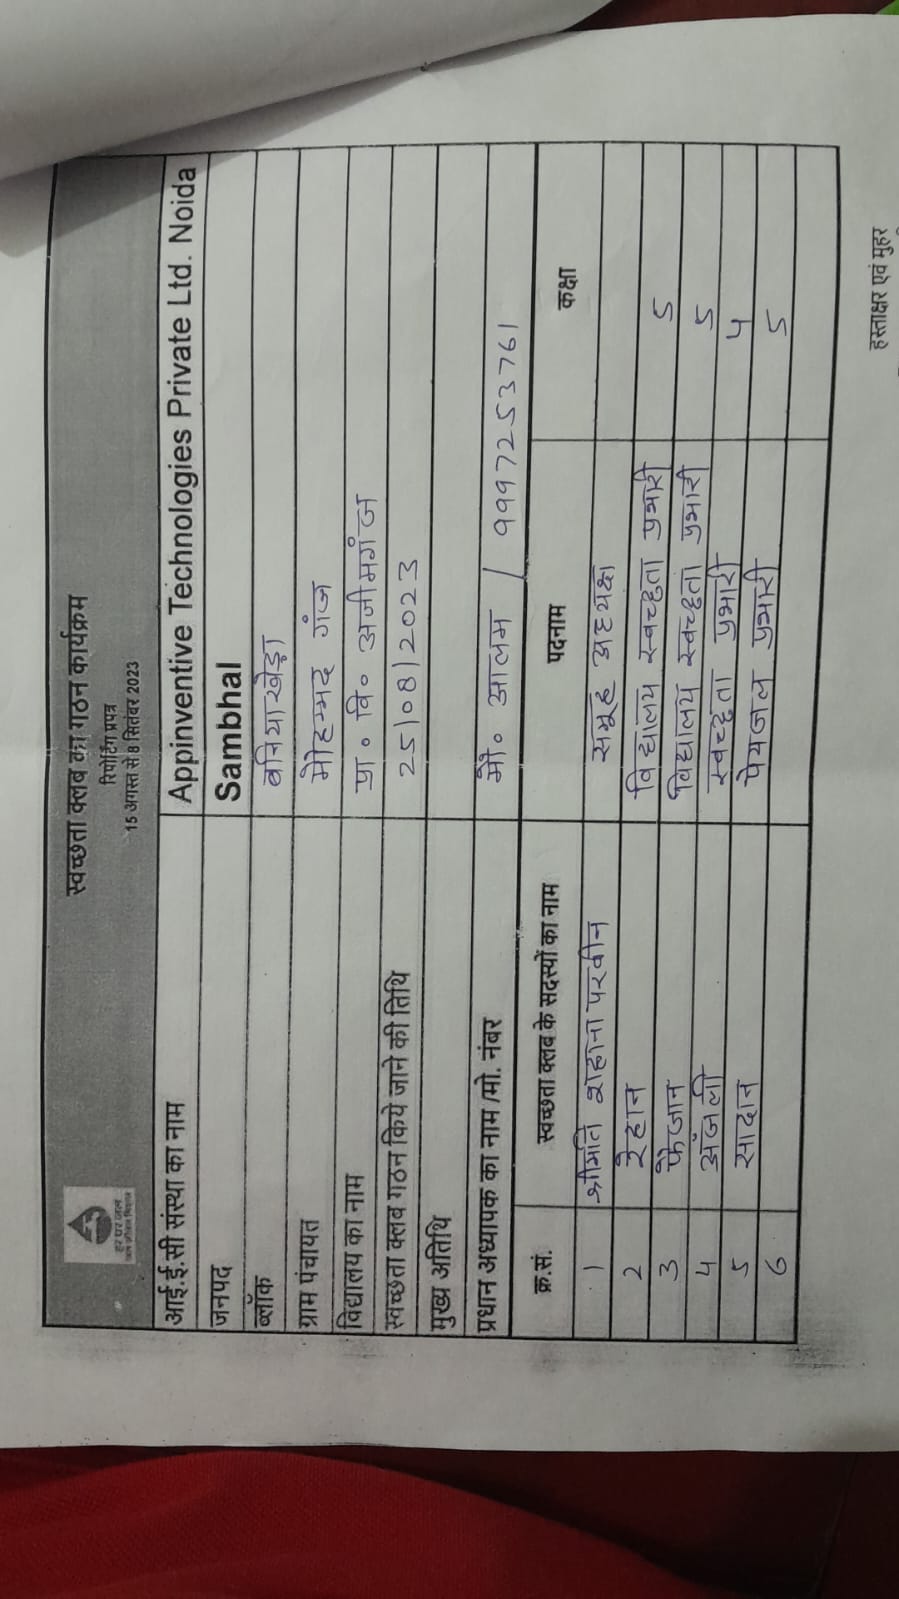 स्वच्छता क्लब का गठन कार्यक्रम
रिपोर्टिंग प्रपत्र
15 अगस्त से 8 सितंबर 2023
हर घर जल
जल जीवन मिशन
आई.ई.सी संस्था का नाम Appinventive Technologies Private Ltd. Noida
जनपद Sambhal
ब्लॉक बनियाखेड़ा
ग्राम पंचायत मौहम्मद गंज
विद्यालय का नाम प्रा० वि० अजीमगंज
स्वच्छता क्लब गठन किये जाने की तिथि 25/08/2023
मुख्य अतिथि
प्रधान अध्यापक का नाम /मो. नंबर मौ० आलम / 9997253761
क्र.सं. स्वच्छता क्लब के सदस्यों का नाम पदनाम कक्षा
1 श्रीमति शहाना परवीन समूह अध्यक्ष
2 रेहान विद्यालय स्वच्छता प्रभारी 5
3 फैजान विद्यालय स्वच्छता प्रभारी 5
4 अंजली स्वच्छता प्रभारी 4
5 सादान पेयजल प्रभारी 5
6
हस्ताक्षर एवं मुहर